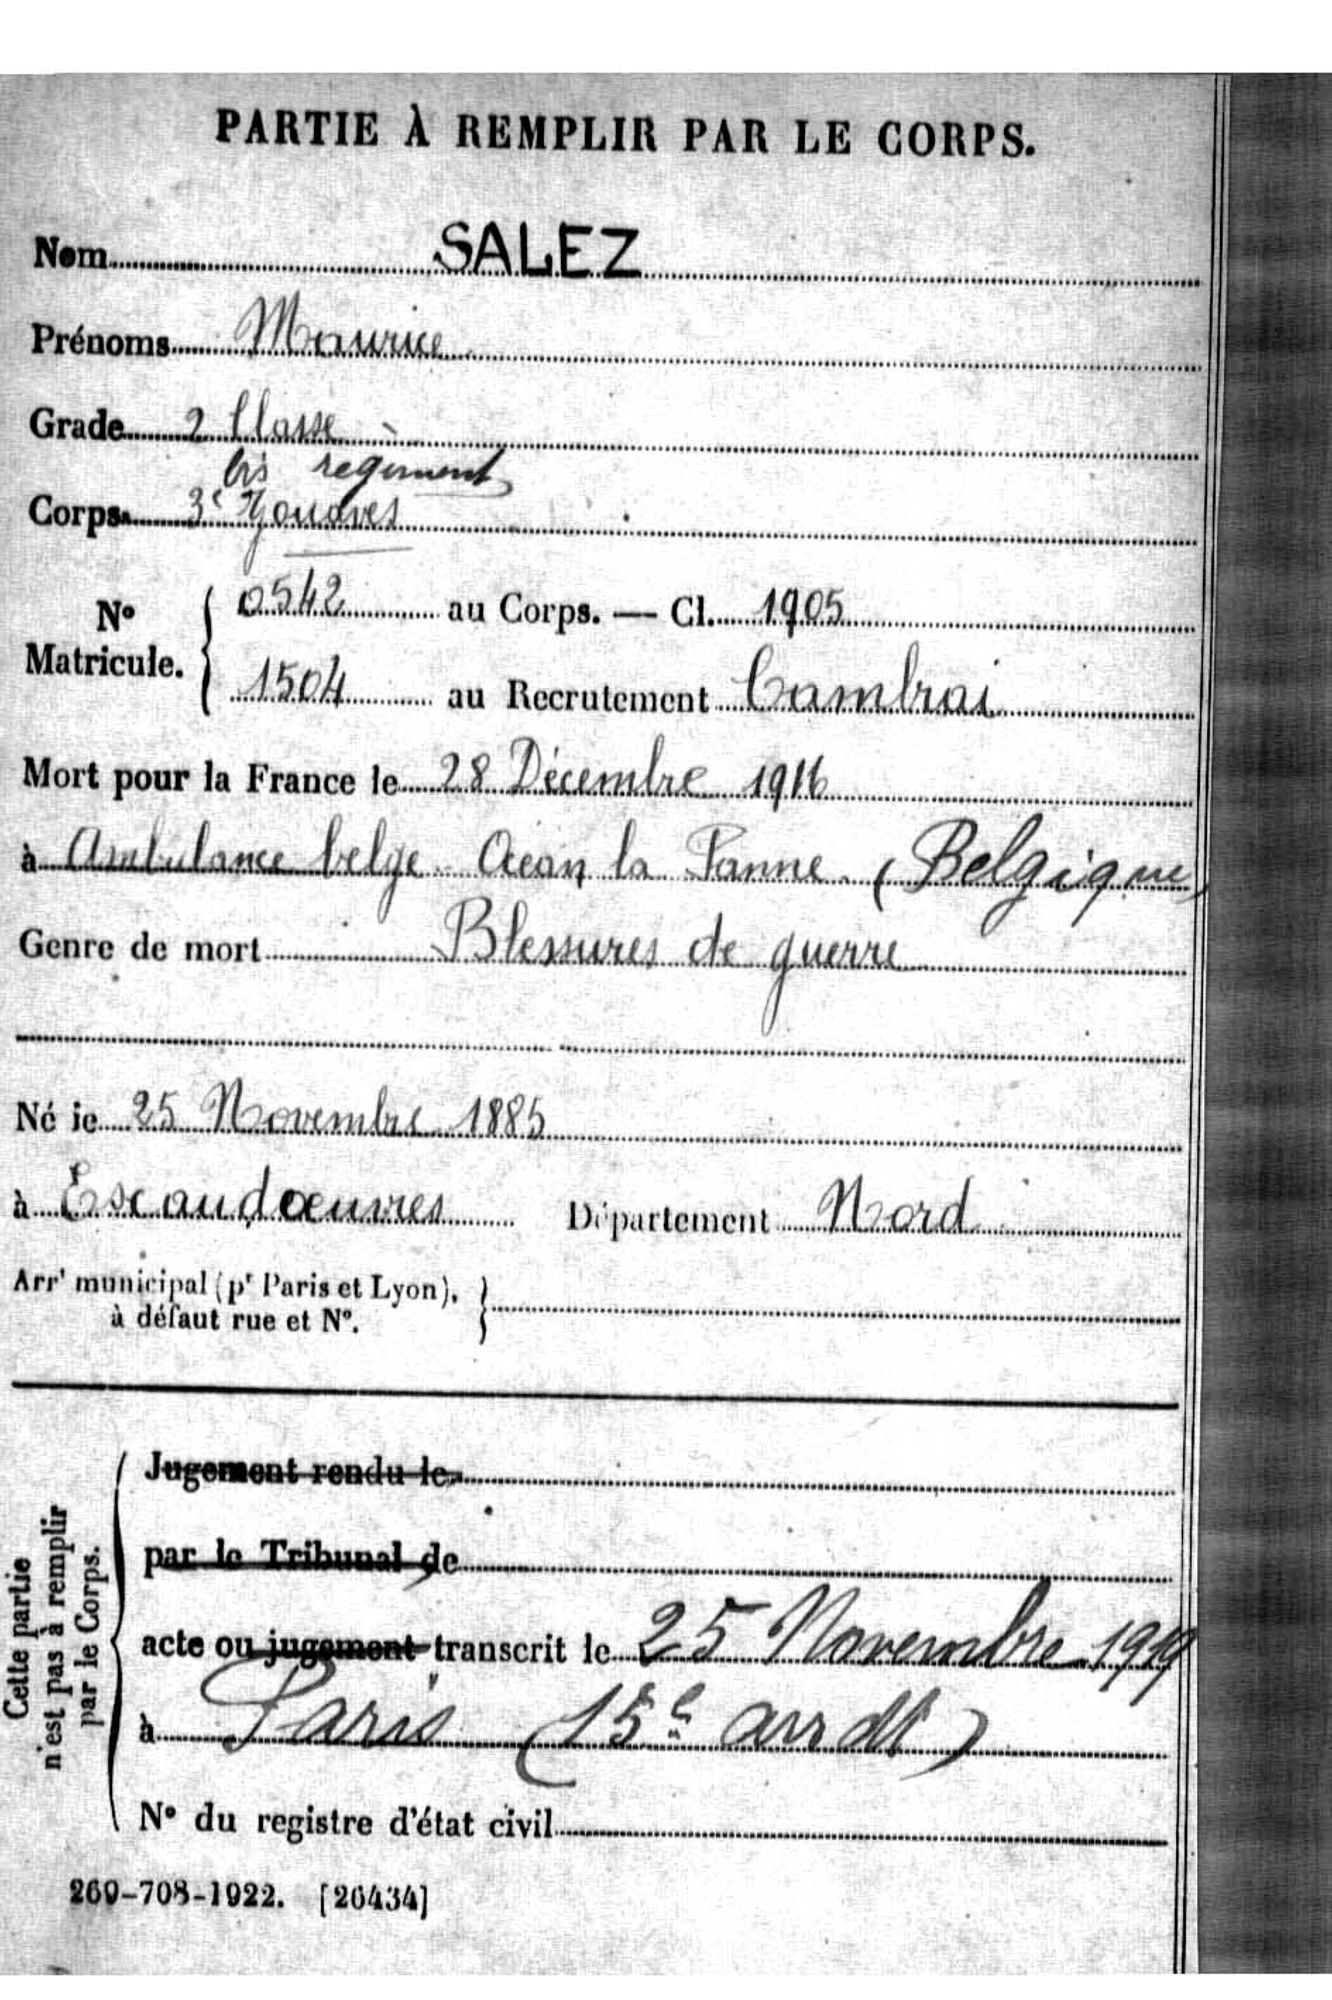 PARTIE À REMPLIR PAR LE CORPS.
Nom SALEZ
Prénoms Maurice
Grade 2 Classe
bis regiment
Corps 3e Zouaves
No Matricule. { 0542 au Corps. — Cl. 1905
1504 au Recrutement Cambrai
Mort pour la France le 28 Décembre 1916
à Ambulance belge Océan la Panne. (Belgique)
Genre de mort Blessures de guerre
Né le 25 Novembre 1885
à Escaudœuvres Département Nord
Arrt municipal (pr Paris et Lyon),
à défaut rue et No.
Cette partie
n'est pas à remplir
par le Corps.
Jugement rendu le
par le Tribunal de
acte ou jugement transcrit le 25 Novembre 1919
à Paris (15e arrdt)
No du registre d'état civil
269-708-1922. [26434]